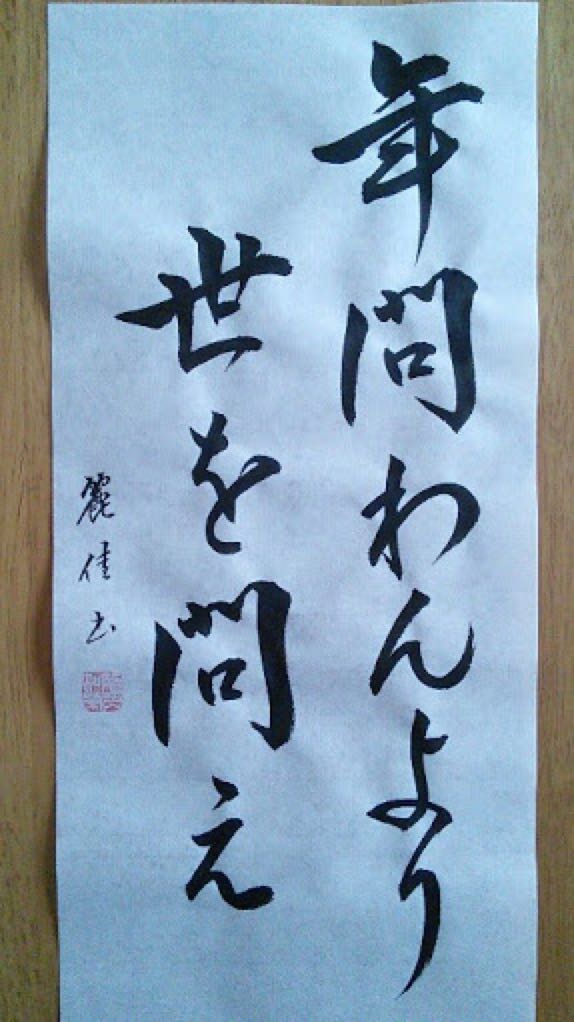 年問わんより
世を問え
麗佳書